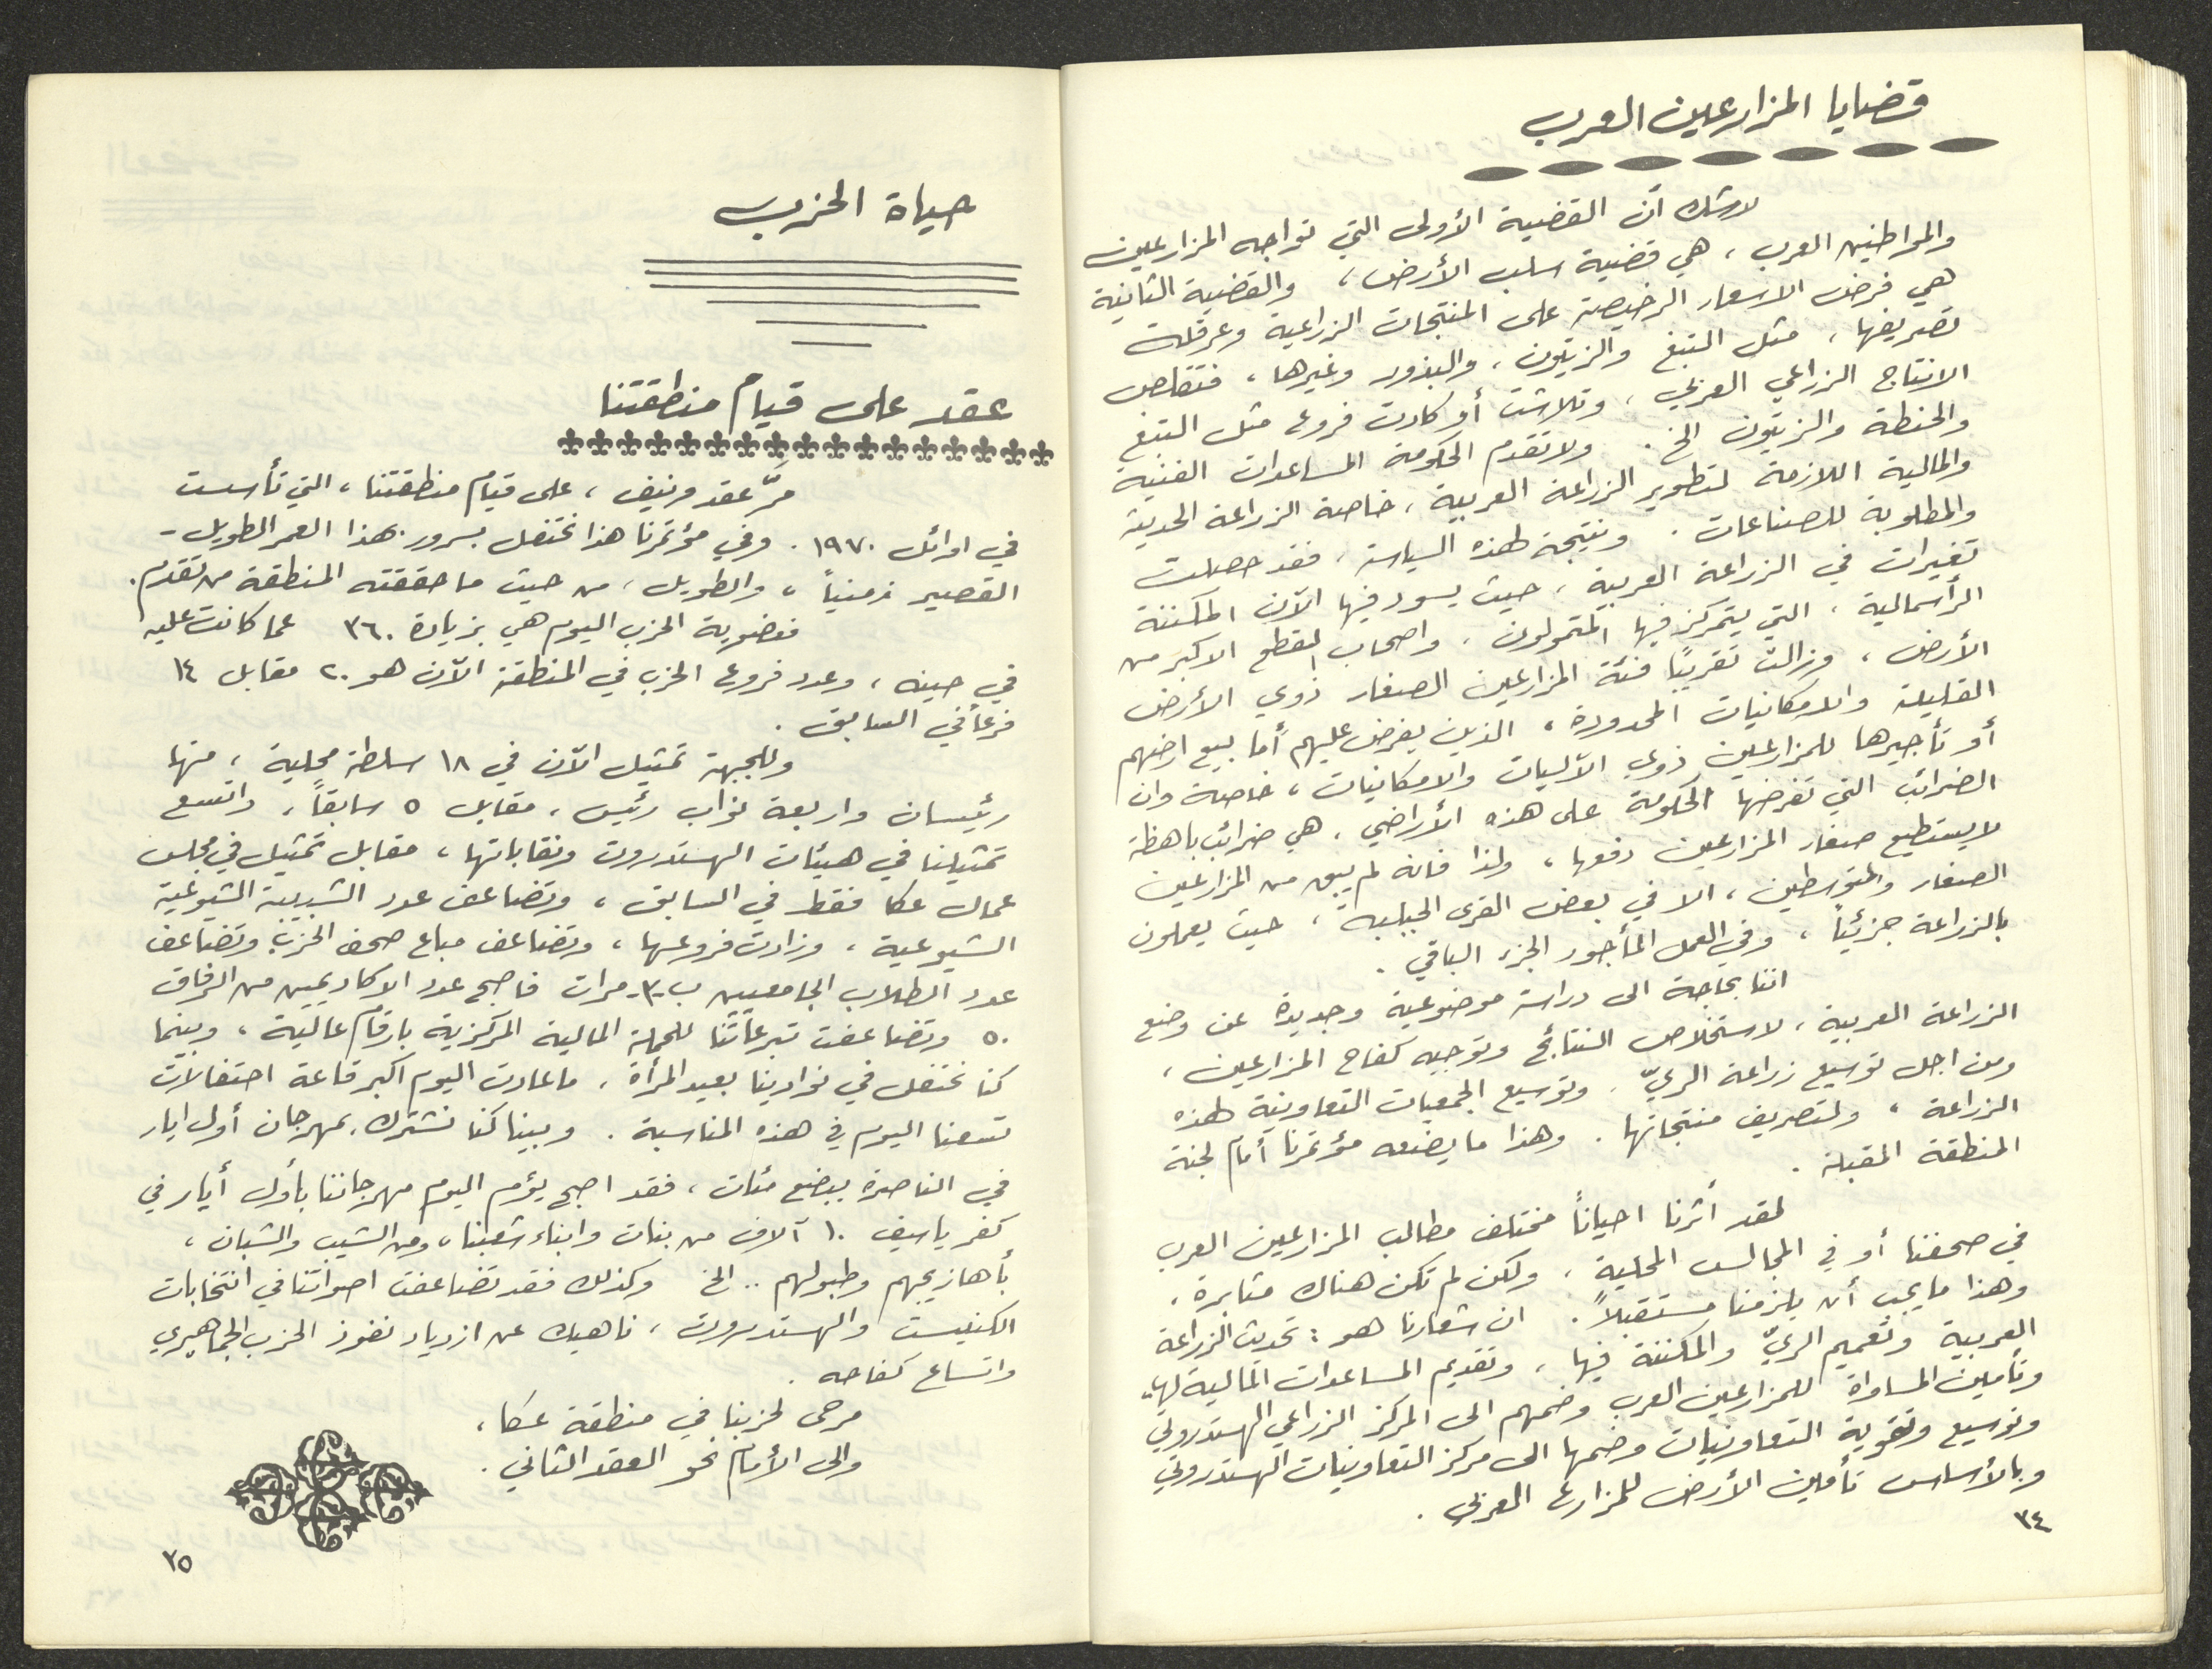 قضايا المزارعين العرب
لا شك أن القضية الأولى التي تواجه المزارعين
والمواطنين العرب ، هي قضية سلب الأرض ، والقضية الثانية
هي فرض الاسعار الرخيصة على المنتجات الزراعية وعرقلة
تصريفها ، مثل التبغ والزيتون ، والبذور وغيرها ، فتقلص
الانتاج الزراعي العربي ، وتلاشت أو كادت فروع مثل التبغ
والحنطة والزيتون الخ . ولا تقدم الحكومة المساعدات الفنية
والمالية اللازمة لتطوير الزراعة العربية ، خاصة الزراعة الحديثة
والمطلوبة للصناعات . ونتيجة لهذه السياسة ، فقد حصلت
تغيرات في الزراعة العربية ، حيث يسود فيها الآن المكننة
الرأسمالية ، التي يتمركز فيها المتمولون ، واصحاب القطع الاكبر من
الأرض ، وزالت تقريبًا فئة المزارعين الصغار ذوي الأرض
القليلة والامكانيات المحدودة ، الذين يفرض عليهم أما بيع ارضهم
أو تأجيرها للمزارعين ذوي الآليات والامكانيات ، خاصة وان
الضرائب التي تفرضها الحكومة على هذه الأراضي ، هي ضرائب باهظة
لا يستطيع صغار المزارعين دفعها ، ولذا فانه لم يبق من المزارعين
الصغار والمتوسطين ، الا في بعض القرى الجبلية ، حيث يعملون
بالزراعة جزئيًا ، وفي العمل المأجور الجزء الباقي .
اننا بحاجة الى دراسة موضوعية وجديدة عن وضع
الزراعة العربية ، لاستخلاص النتائج وتوجيه كفاح المزارعين ،
ومن اجل توسيع زراعة الريّ ، وتوسيع الجمعيات التعاونية لهذه
الزراعة ، ولتصريف منتجاتها . وهذا ما يضعه مؤتمرنا أمام لجنة
المنطقة المقبلة .
لقد أثرنا احيانًا مختلف مطالب المزارعين العرب
في صحفنا أو في المجالس المحلية ، ولكن لم تكن هناك مثابرة ،
وهذا ما يجب أن يلزمنا مستقبلاً . ان شعارنا هو : تحديث الزراعة
العربية وتعميم الريّ والمكننة فيها ، وتقديم المساعدات المالية لها ،
وتأمين المساواة للمزارعين العرب وضمهم الى المركز الزراعي الهستدروتي
وتوسيع وتقوية التعاونيات وضمها الى مركز التعاونيات الهستدروتي
وبالأساس تأمين الأرض للمزارع العربي .
٣٤
حياة الحزب
عقد على قيام منطقتنا
مرَّ عقد ونيف ، على قيام منطقتنا ، التي تأسست
في اوائل ١٩٧٠ . وفي مؤتمرنا هذا نحتفل بسرور بهذا العمر الطويل -
القصير زمنياً ، والطويل ، من حيث ما حققته المنطقة من تقدم .
فعضوية الحزب اليوم هي بزيادة ٣٦٠ عما كانت عليه
في حينه ، وعدد فروع الحزب في المنطقة الآن هو ٢٠ مقابل ١٤
فرعاً في السابق .
وللجبهة تمثيل الآن في ١٨ سلطة محلية ، منها
رئيسان واربعة نواب رئيس ، مقابل ٥ سابقاً ، واتسع
تمثيلنا في هيئات الهستدروت ونقاباتها ، مقابل تمثيل في مجلس
عمال عكا فقط في السابق ، وتضاعف عدد الشبيبة الشيوعية
الشيوعية ، وزادت فروعها ، وتضاعف مباع صحف الحزب وتضاعف
عدد الطلاب الجامعيين ب-٣- مرات فاصبح عدد الاكاديميين من الرفاق
٥٠ وتضاعفت تبرعاتنا للحملة المالية المركزية بارقام عالية ، وبينما
كنا نحتفل في نوادينا بعيد المرأة ، ما عادت اليوم اكبر قاعة احتفالات
تسعنا اليوم في هذه المناسبة . وبينا كنا نشترك بمهرجان أول ايار
في الناصرة ببضع مئات ، فقد اصبح يؤم اليوم مهرجاننا بأول أيار في
كفر ياسيف ١٠ آلاف من بنات وابناء شعبنا ، ومن الشيب والشبان ،
بأهازيجهم وطبولهم .. الخ وكذلك فقد تضاعفت اصواتنا في انتخابات
الكنيست والهستدروت ، ناهيك عن ازدياد نفوذ الحزب الجماهيري
واتساع كفاحه .
مرحى لحزبنا في منطقة عكا ،
والى الأمام نحو العقد الثاني .
٣٥